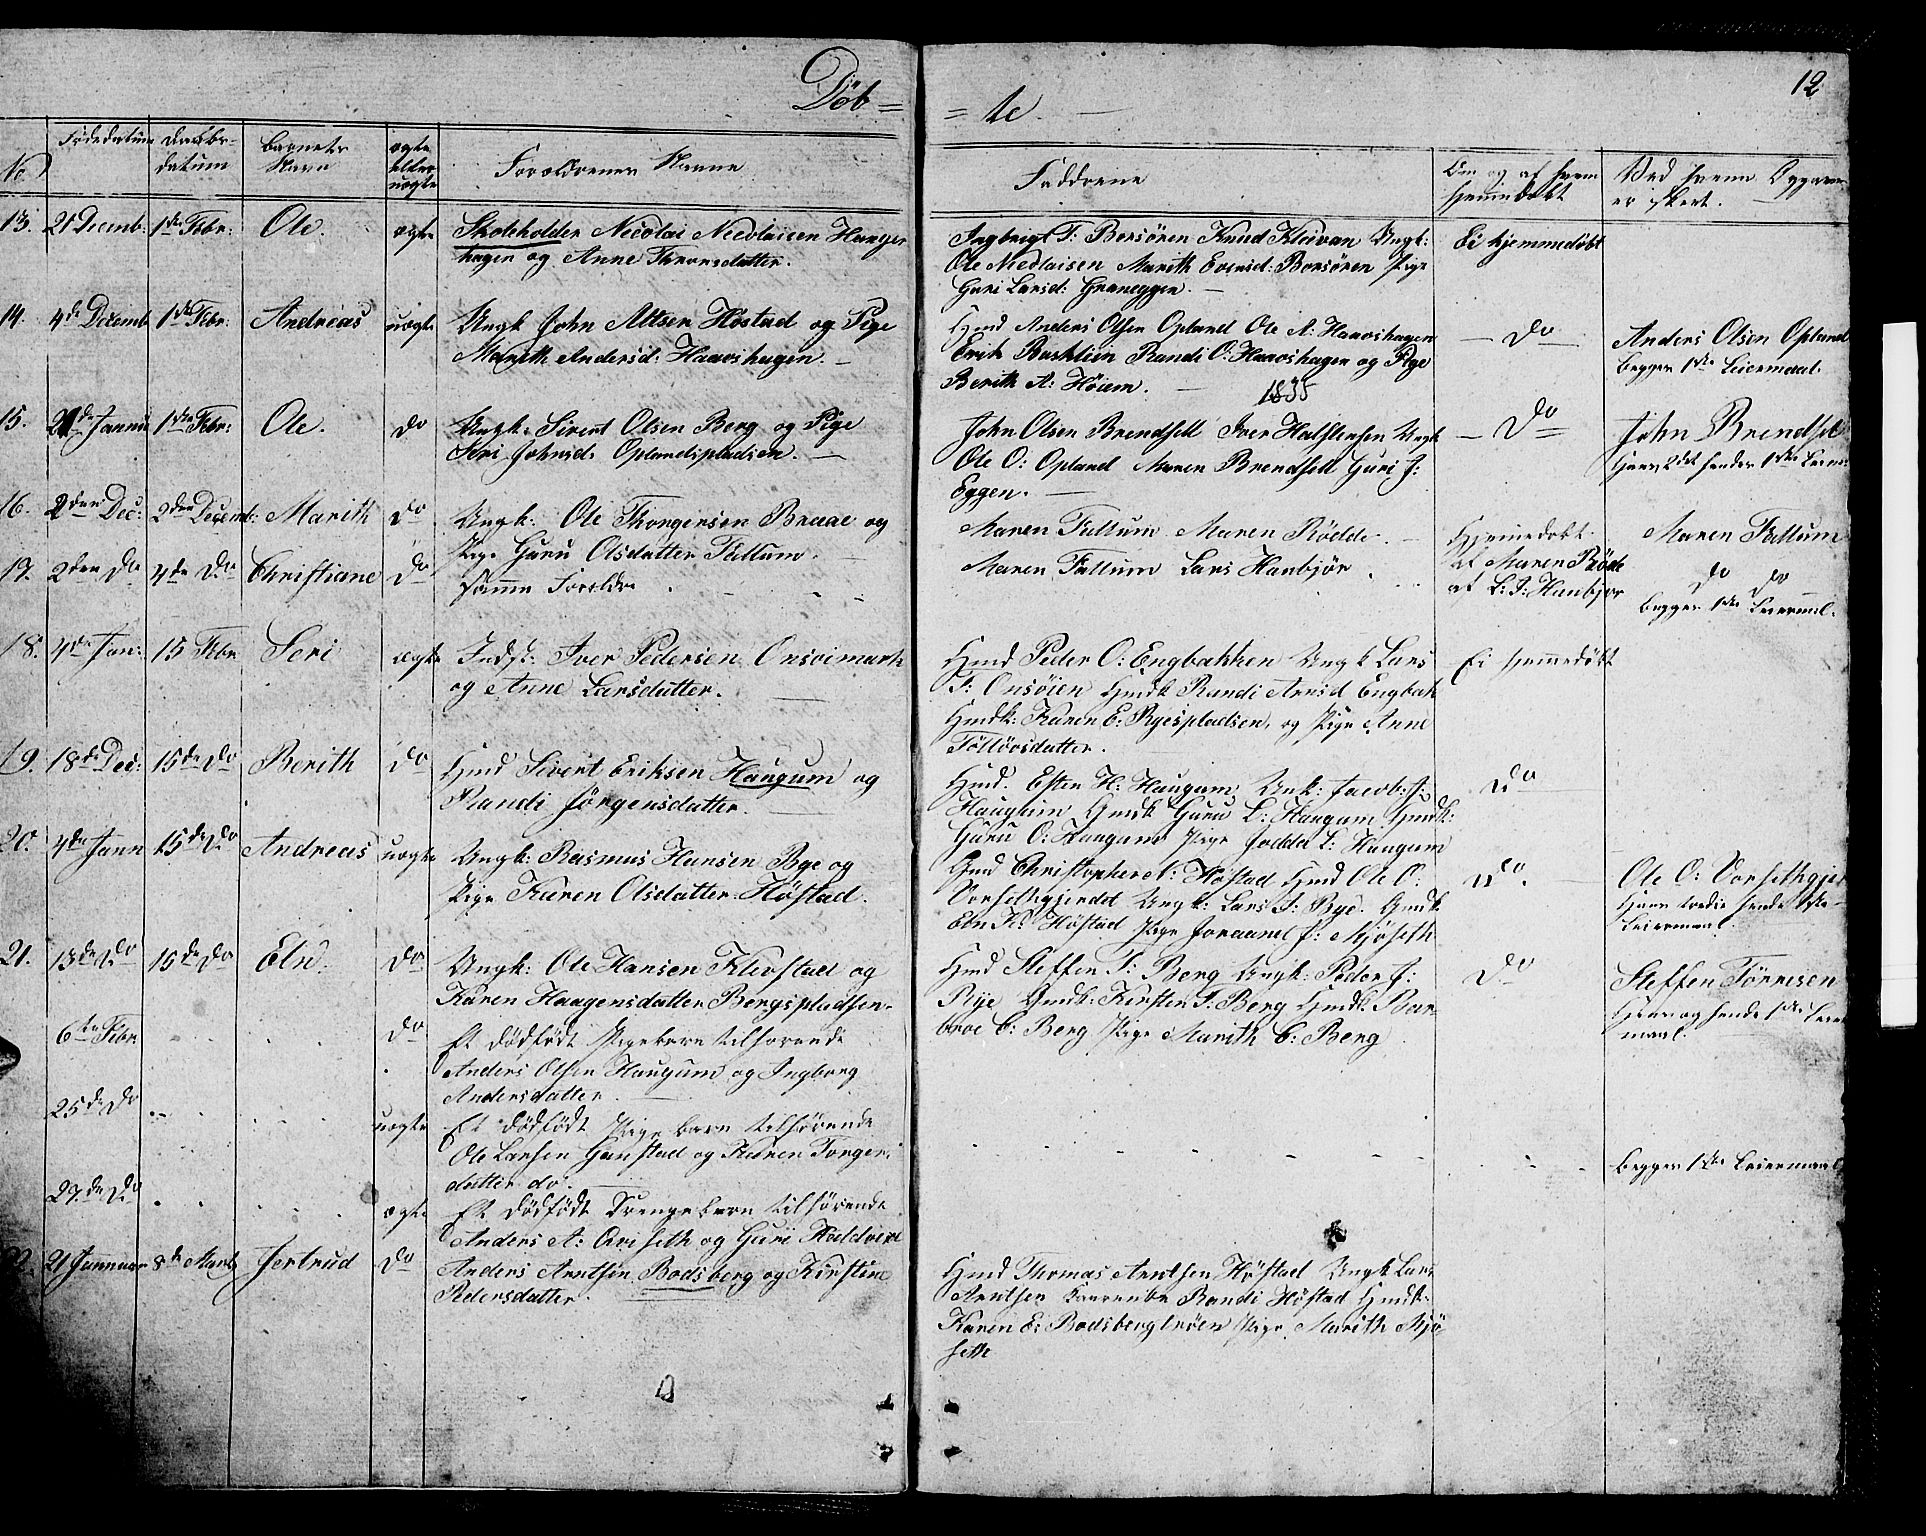 Döb =
= te.
12
No
Fødedatum
Daabs-
datum
Barnets
Navn
ægte
eller
uægte
Forældrenes Navne
Faddrene
Om og af hvem
hjemmedøbt
Ved hvem Opgaven
er skeet.
13. 21 Decemb: 1ste Febr: Ole. ægte Skoleholder Nicolai Nicolaisen Haugen
hagen og Anne Thronsdatter.
Ingbrigt T: Borsören Knud Kleivan Ungk:
Ole Nicolaisen Marith Evensd: Borsören Pige
Guri Larsd: Graneggen.
Ei hjemmedøbt
14. 4de Decemb 1ste Febr: Andreas uægte Ungk John Altsen Høstad og Pige
Marith Andersd: Haavshagen.
Hmd Anders Olsen Opland Ole A: Haavshagen
Erik Backlien Randi O: Haavshagen og Pige
Berith A: Höiem.
Do
Anders Olsen Opland
begges 1ste Leiermaal.
1835
15. 21de Januar 1ste Febr: Ole. Do Ungk: Sivert Olsen Berg og Pige
Seri Johnsd: Oplandspladsen.
John Olsen Brendsell Iver Halstensen Ungk
Ole O: Opland Maren Brendsell Guri J:
Eggen.
Do
John Brendsel
hans 2det hendes 1ste Leierm:
16. 2den Dec: 2den Decemb: Marith Do Ungk: Ole Thorgersen Braae og
Pige Guru Olsdatter Tullum.
Maren Tullum Maren Rödde.
Hjemmedøbt
af Maren Röde
Maren Tullum
17. 2den Do 4de Do Christiane Do Samme Forældre
Maren Tullum Lars Hanbjör
af L: J: Hanbjor
Do Do
begges 1ste Leierml.
18. 4de Jan: 15 Febr Seri ægte Indst: Iver Pedersen Onsöimark
og Anne Larsdatter.
Hmd Peder O: Engbakken Ungk Lars
T: Onsöien Hmdk Randi Arnsd Engbak
Hmdk: Karen E: Ryespladsen, og Pige Anne
Töllövsdatter.
Ei hjemmedøbt
19. 18de Dec: 15de Do Berith Do Hmd Sivert Eriksen Haugum og
Randi Jörgensdatter.
Hmd. Esten H: Haugum Unk: Jacob: J:
Haugum Gmdk Guru L: Haugum Gmdk:
Guru O: Haugum Pige Jodda L: Haugum
Do
20. 4de Jann 15de Do Andreas uægte Ungk: Rasmus Hansen Bye og
Pige Karen Olsdatter Høstad.
Gmd Christopher A: Høstad Hmd Ole O:
Vorsethgjerdet Ungk: Lars J: Bye. Gmdk
Eln K: Høstad Pige Joraand J: Mjøseth
Do.
Ole O: Vorsethgjer
Hans tredie hendes 1ste
Leiermaal.
21. 13de Do 15de Do Eln. Do Ungk: Ole Hansen Klefstad og
Karen Haagensdatter Bergspladsen.
Hmd Steffen T: Berg Ungk: Peder J:
Rye Gmdk: Kirsten T: Berg Hmdk Bar-
broe C: Berg Pige Marith C: Berg
Do
Steffen Tönnesen
Hans og hendes 1ste Leier
maal.
6te Febr Do Et dödfödt Pigebarn tilhörende
Anders Olsen Haugum og Ingborg
Andersdatter.
25de Do uægte Et dödfödt Pige barn tilhörende
Ole Larsen Gunstad og Karen Torger:
datter do.
begges 1ste Leiermaal
27de Do ægte Et dödfödt Drengebarn tilhörende
Anders A: Qviseth og Guri
22. 21 Januar 8de Marts Jertrud Do Anders Arntsen Bodsberg og Kirstine
Pedersdatter.
Hmd Thomas Arntsen Høstad Ungk Lars
Arntsen Randi Høstad Hmdk:
Karen E: Bodsbergtrøen Pige. Marith Mjö
seth